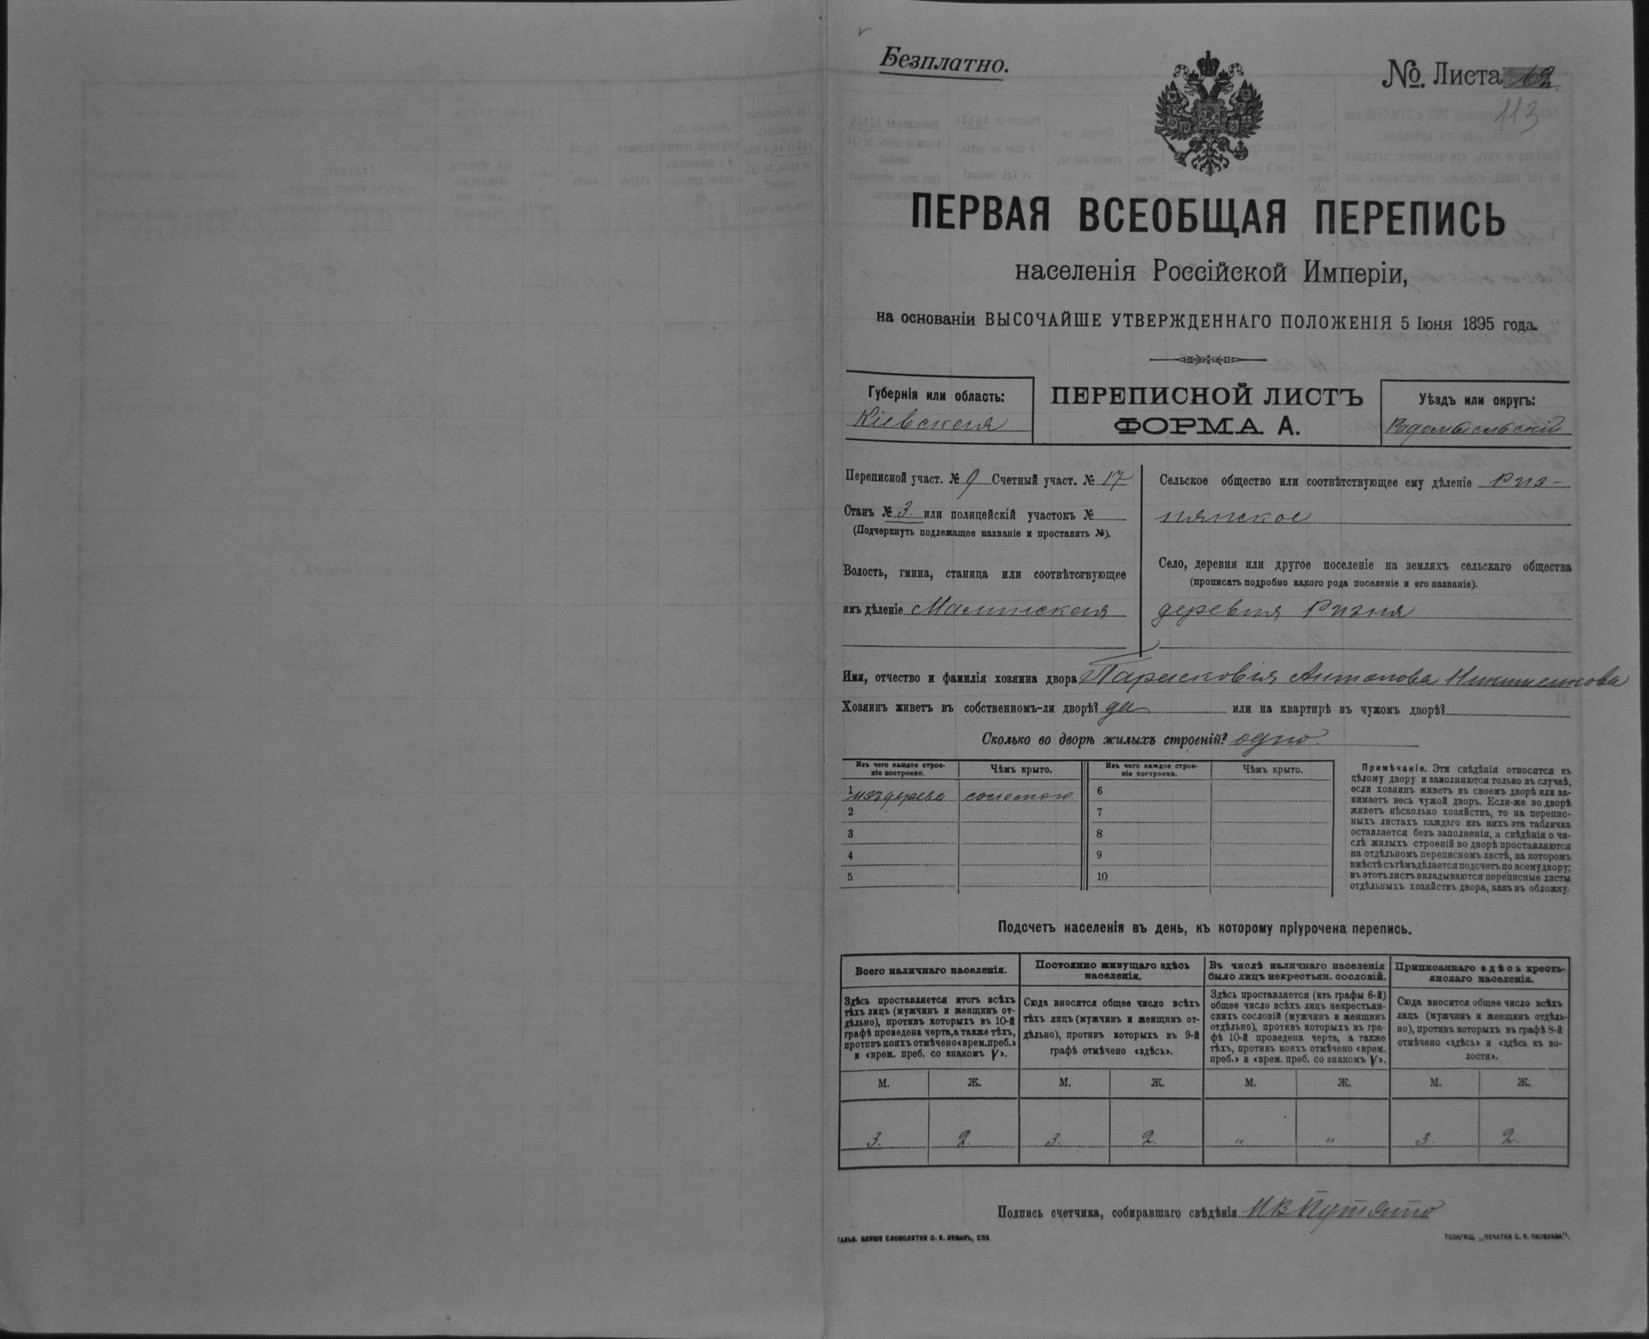 Безплатно.
№. Листа 62
113
ПЕРВАЯ ВСЕОБЩАЯ ПЕРЕПИСЬ
населенія Россійской Имперіи,
на основаніи ВЫСОЧАЙШЕ УТВЕРЖДЕННАГО ПОЛОЖЕНІЯ 5 Іюня 1895 года.
Губернія или область:
Кіевская
ПЕРЕПИСНОЙ ЛИСТЪ
ФОРМА А.
Уѣздъ или округъ:
Радомысльскій
Переписной участ. № 9 Счетный участ. № 17
Станъ № 3. или полицейскій участокъ №
(Подчеркнуть подлежащее названіе и проставить №).
Волость, гмина, станица или соотвѣтствующее
имъ дѣленіе Малинская
Сельское общество или соотвѣтствующее ему дѣленіе Риз-
нянское
Село, деревня или другое поселеніе на земляхъ сельскаго общества
(прописать подробно какого рода поселеніе и его названіе).
деревня Ризня
Имя, отчество и фамилія хозяина двора Парасковія Антонова
Хозяинъ живетъ въ собственномъ-ли дворѣ? да или на квартирѣ въ чужомъ дворѣ?
Сколько во дворѣ жилыхъ строеній? одно.
Изъ чего каждое строе-
ніе построено.
Чѣмъ крыто.
Изъ чего каждое строе-
ніе построено.
Чѣмъ крыто.
1 изъ дерева соломою
2
3
4
5
6
7
8
9
10
Примѣчаніе. Эти свѣдѣнія относятся къ
цѣлому двору и заполняются только въ случаѣ,
если хозяинъ живетъ въ своемъ дворѣ или за-
нимаетъ весь чужой дворъ. Если-же во дворѣ
живетъ нѣсколько хозяйствъ, то на перепис-
ныхъ листахъ каждаго изъ нихъ эта табличка
оставляется безъ заполненія, а свѣдѣнія о чи-
слѣ жилыхъ строеній во дворѣ проставляются
на отдѣльномъ переписномъ листѣ, на которомъ
вмѣстѣ съ тѣмъ дѣлается подсчетъ по всему двору;
въ этотъ листъ вкладываются переписные листы
отдѣльныхъ хозяйствъ двора, какъ въ обложку.
Подсчетъ населенія въ день, къ которому пріурочена перепись.
Всего наличнаго населенія.
Здѣсь проставляется итогъ всѣхъ
тѣхъ лицъ (мужчинъ и женщинъ от-
дѣльно), противъ которыхъ въ 10-й
графѣ проведена черта, а также тѣхъ,
противъ коихъ отмѣчено «врем. преб.»
и «врем. преб. со знакомъ V».
Постоянно живущаго здѣсь
населенія.
Сюда вносится общее число всѣхъ
тѣхъ лицъ (мужчинъ и женщинъ от-
дѣльно), противъ которыхъ въ 9-й
графѣ отмѣчено «здѣсь».
Въ числѣ наличнаго населенія
было лицъ некрестьян. сословій.
Здѣсь проставляется (изъ графы 6-й)
общее число всѣхъ лицъ некрестьян-
скихъ сословій (мужчинъ и женщинъ
отдѣльно), противъ которыхъ въ гра-
фѣ 10-й проведена черта, а также
тѣхъ, противъ коихъ отмѣчено «врем.
преб.» и «врем. преб. со знакомъ V».
Приписаннаго здѣсь кресть-
янскаго населенія.
Сюда вносится общее число всѣхъ
лицъ (мужчинъ и женщинъ отдѣль-
но), противъ которыхъ въ графѣ 8-й
отмѣчено «здѣсь» и «здѣсь къ во-
лости».
М. Ж. М. Ж. М. Ж. М. Ж.
3. 2. 3. 2. „ „ 3. 2.
Подпись счетчика, собиравшаго свѣдѣнія И В Путято
ГАЛЬВ. КЛИШЕ СЛОВОЛИТНИ О. И. ЛЕМАНЪ, СПБ
ТОВАРИЩ. „ПЕЧАТНЯ С. П. ЯКОВЛЕВА".